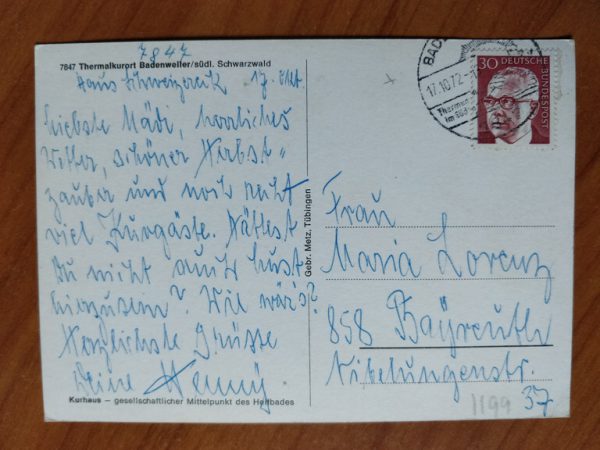 7847
7847 Thermalkurort Badenweiler/südl. Schwarzwald
Haus Schweizereck 17. Okt.
Liebste Mädi, herrliches
Wetter, schöner Herbst-
zauber und noch recht
viel Kurgäste. Hättest
Du nicht auch Lust
herzusen? Wie wär's?
Herzlichste Grüsse
Deine Henny
Kurhaus – gesellschaftlicher Mittelpunkt des Heilbades
Gebr. Metz, Tübingen
17.10.72
30 DEUTSCHE
BUNDESPOST
Frau
Maria Lorenz
858 Bayreuth
Nibelungenstr.
37
1199